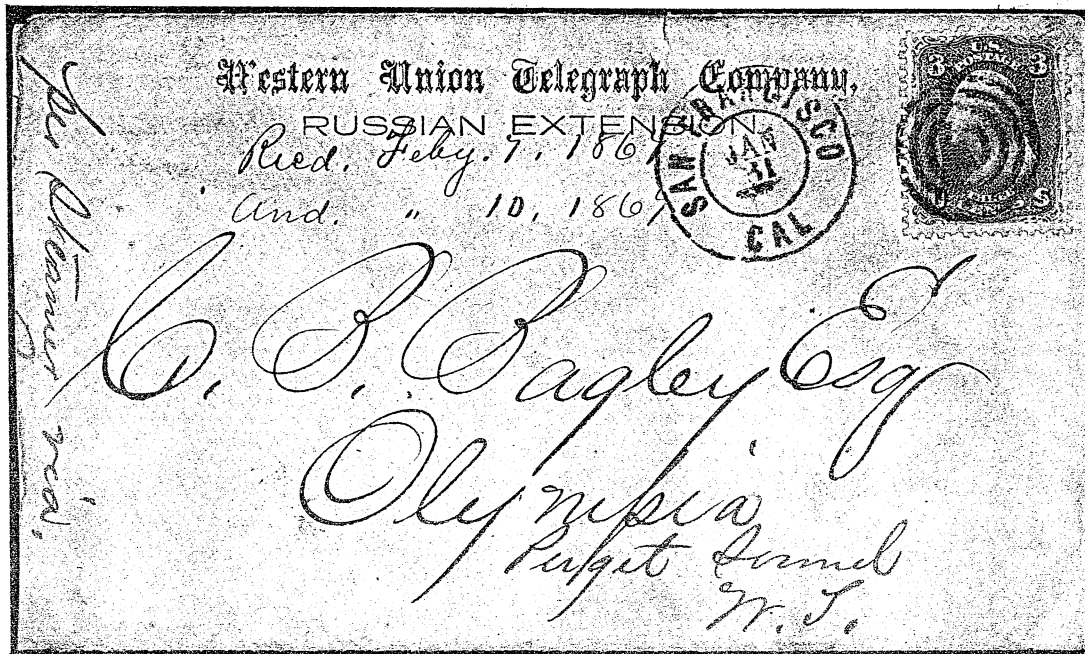 Western Union Telegraph Company,
RUSSIAN EXTENSION.
Recd. Feby. 7. 1867
Ansd. " 10, 1867
SAN FRANCISCO
JAN
31
CAL
U.S.
3 POSTAGE 3
U S
C. B. Bagley Esq
Olympia
Puget Sound
W. T.
Per Steamer